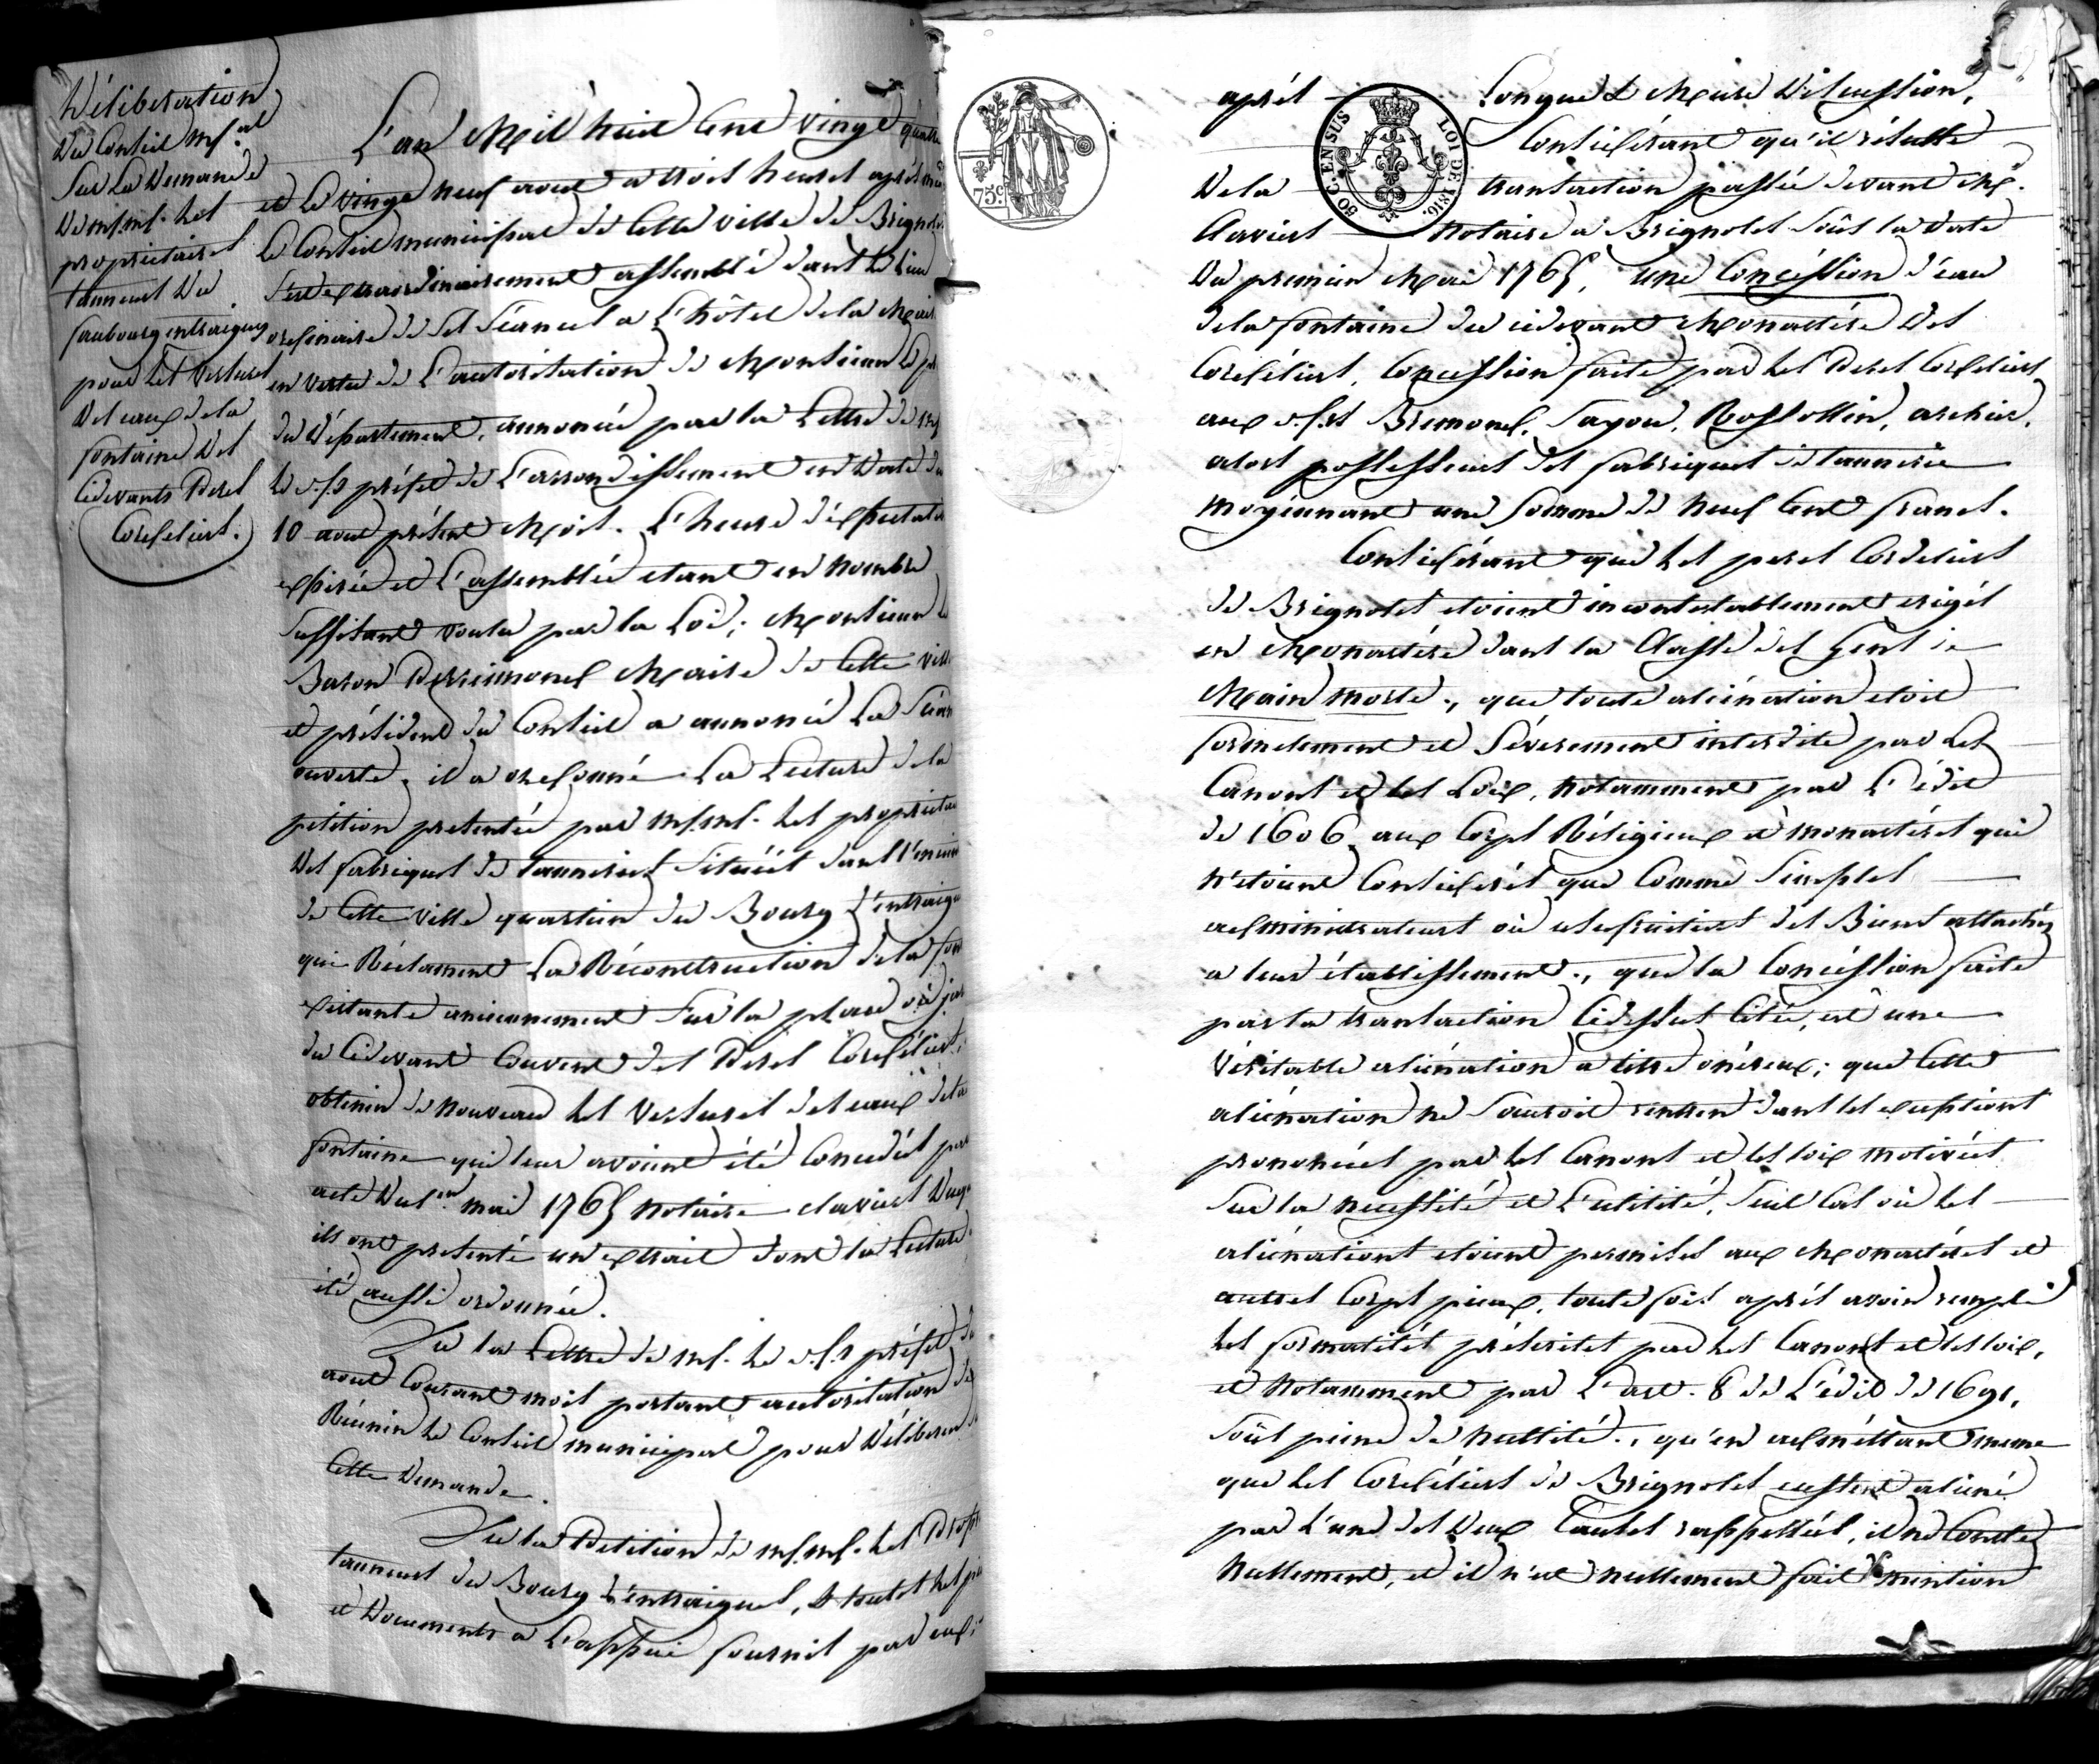 Délibération
Du Conseil m.pal
Sur La Demande
De mrs.mrs. les
propriétaires
tanneurs Du
faubourg entraigues
pour les versures
Des eaux de la
fontaine Des
cidevants Peres
Cordeliers.
L'an Mil huit Cent vingt quatre
et le vingt neuf aout a trois heures après mi
Le Conseil municipal de Cette ville de Brignoles
s'est extraordinairement assemblé dans le lieu
ordinaire de ses Séances a l'hôtel de la Mairie
en vertu de l'autorisation de Monsieur le pré
du Département, annoncée par la Lettre de mr
le s. préfet de L'arrondissement en Date du
10 aout présent Mois. L'heure d'expectative
expirée et L'assemblée etant en nombre
suffisant voulu par la Loi; Monsieur le
Baron Desrimonel Maire de Cette ville
et président du Conseil a annoncé La Séance
ouverte, il a ordonné La Lecture de la
pétition presentée par mrs.mrs. les propriétai
Des fabriques de tanneries situées dans l'encein
de Cette ville quartier du Bourg d'entraigu
qui Réclament La Réconstruction de la font
existante anciennement sur la place
du Cidevant Couvent des Peres Cordéliers,
obtenir de nouveau les versures des eaux de la
fontaine qui leur avoient été Concédées par
acte Du 1er mai 1765 notaire claviers Duq
ils ont presenté un extrait dont la Lecture
été aussi ordonnée.
Vu la Lettre de mr. le s. préfet du
aout Courant mois portant autorisation de
Réunir le Conseil municipal pour Délibérer
Cette Demande.
Vu la Petition de mrs.mrs. les Prop
tanneurs du Bourg d'entraigues, & toutes les piè
et Documents a L'appui fournis par eux;
75c.
50 C. EN SUS
LOI DE 1816.
après Longue & Mûre Discussion,
Considérant qu'il résulte
De la transaction passée devant Me.
Claviers notaire a Brignoles sous la Date
Du premier Mai 1765, une Concéssion d'eau
de la fontaine du cidevant Monastère Des
Cordéliers, Concession faite par les Peres Cordeliers
aux srs. Bremond, Sayou, Rossollin, archier,
alors possesseurs des fabriques de tannerie
moyennant une Somme de neuf Cent francs.
Considérant que les peres Cordeliers
de Brignoles etoient incontestablement erigés
en Monastère dans la Classe des Gens de
Main morte., que toute aliénation etoit
formelement et Séverement interdite par les
Canons et les Loix, notamment par L'édit
de 1606. aux Corps Réligieux et monastères qui
n'etoient Considérés que Comme Simples
administrateurs ou usufruitiers des Biens attachés
a leur établissement., que la Concéssion faite
par la transaction Cidessus Citée, est une
Véritable aliénation a titre onéreux; que Cette
aliénation ne Sauroit rentrer dans les exceptions
prononcées par les Canons et les loix motivées
Sur la nécéssité et L'utilité, Seuls Cas où les
aliénations etoient permises aux Monastères et
autres Corps pieux, toute fois après avoir rempli
les formalités préscrites par les Canons et les loix,
et Notamment par L'art. 8 de L'édit de 1691,
Sous peine de Nullité., qu'en admettant meme
que les Cordéliers de Brignoles eussent aliéné
par L'une des Deux Causes rappellées, il ne Conste
Nullement, et il n'est nullement fait mention